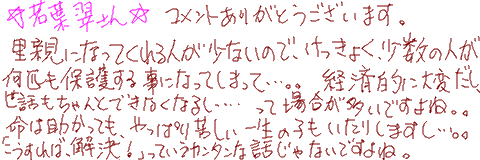 ☆若葉翠さん☆ コメントありがとうございます。
里親になってくれる人が少ないので、けっきょく、少数の人が
何匹も保護する事になってしまって…。。経済的に大変だし、
世話もちゃんとできなくなるし…‥って場合が多いですよね。。
命は助かっても、やっぱり苦しい一生の子もいたりしますし…。。
「こうすれば、解決!」っていうカンタンな話じゃないですよね。